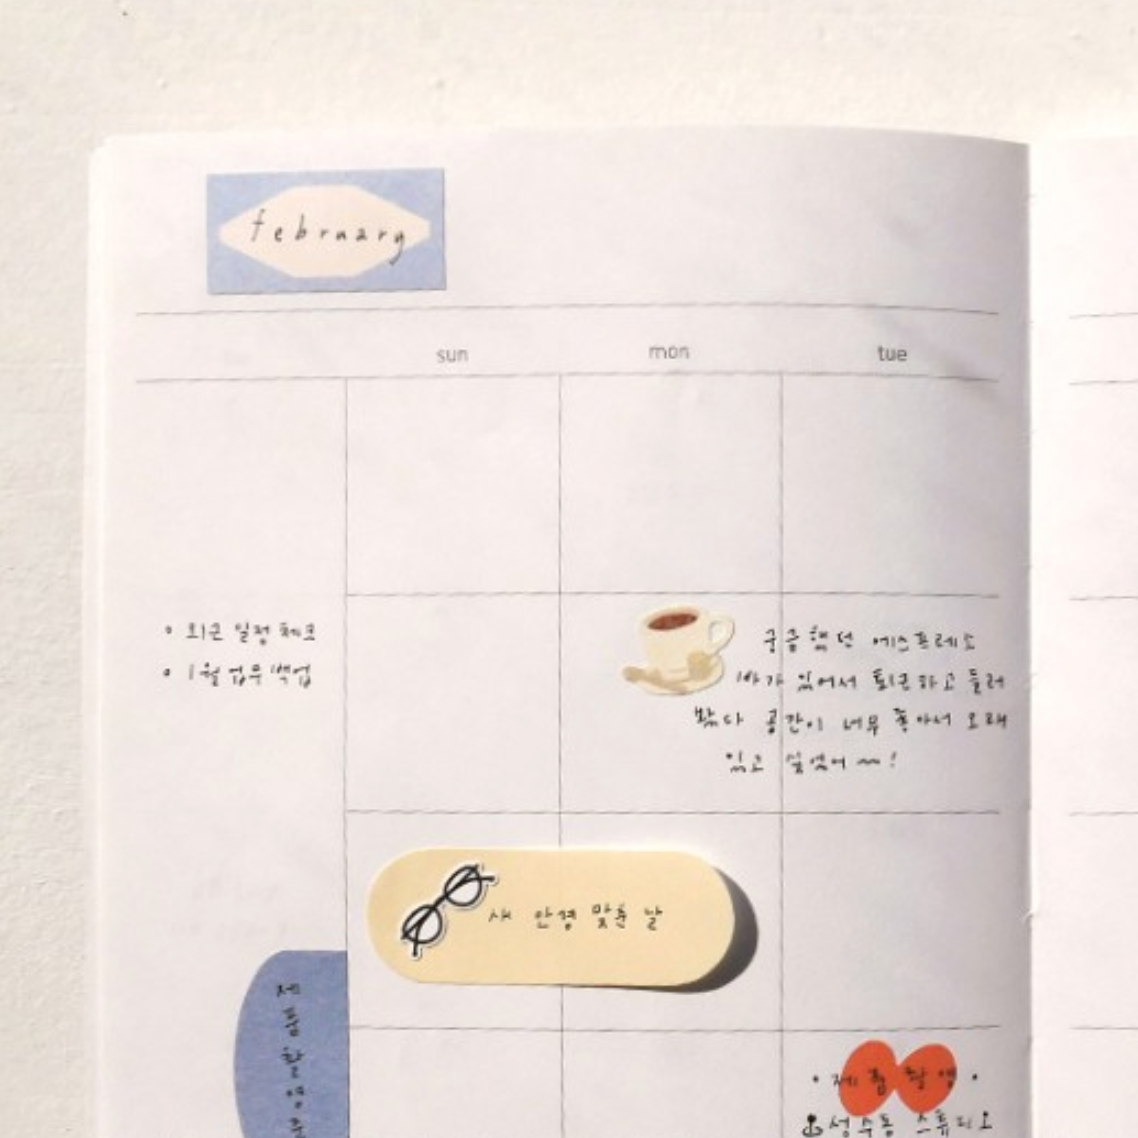 february
sun mon tue
• 퇴근 일정 체크
• 1월 업무 백업
궁금했던 에스프레소
바가 있어서 퇴근하고 들러
봤다 공간이 너무 좋아서 오래
있고 싶었어~!
새 안경 맞춘 날
제품촬영준
• 제품촬영 •
성수동 스튜디오